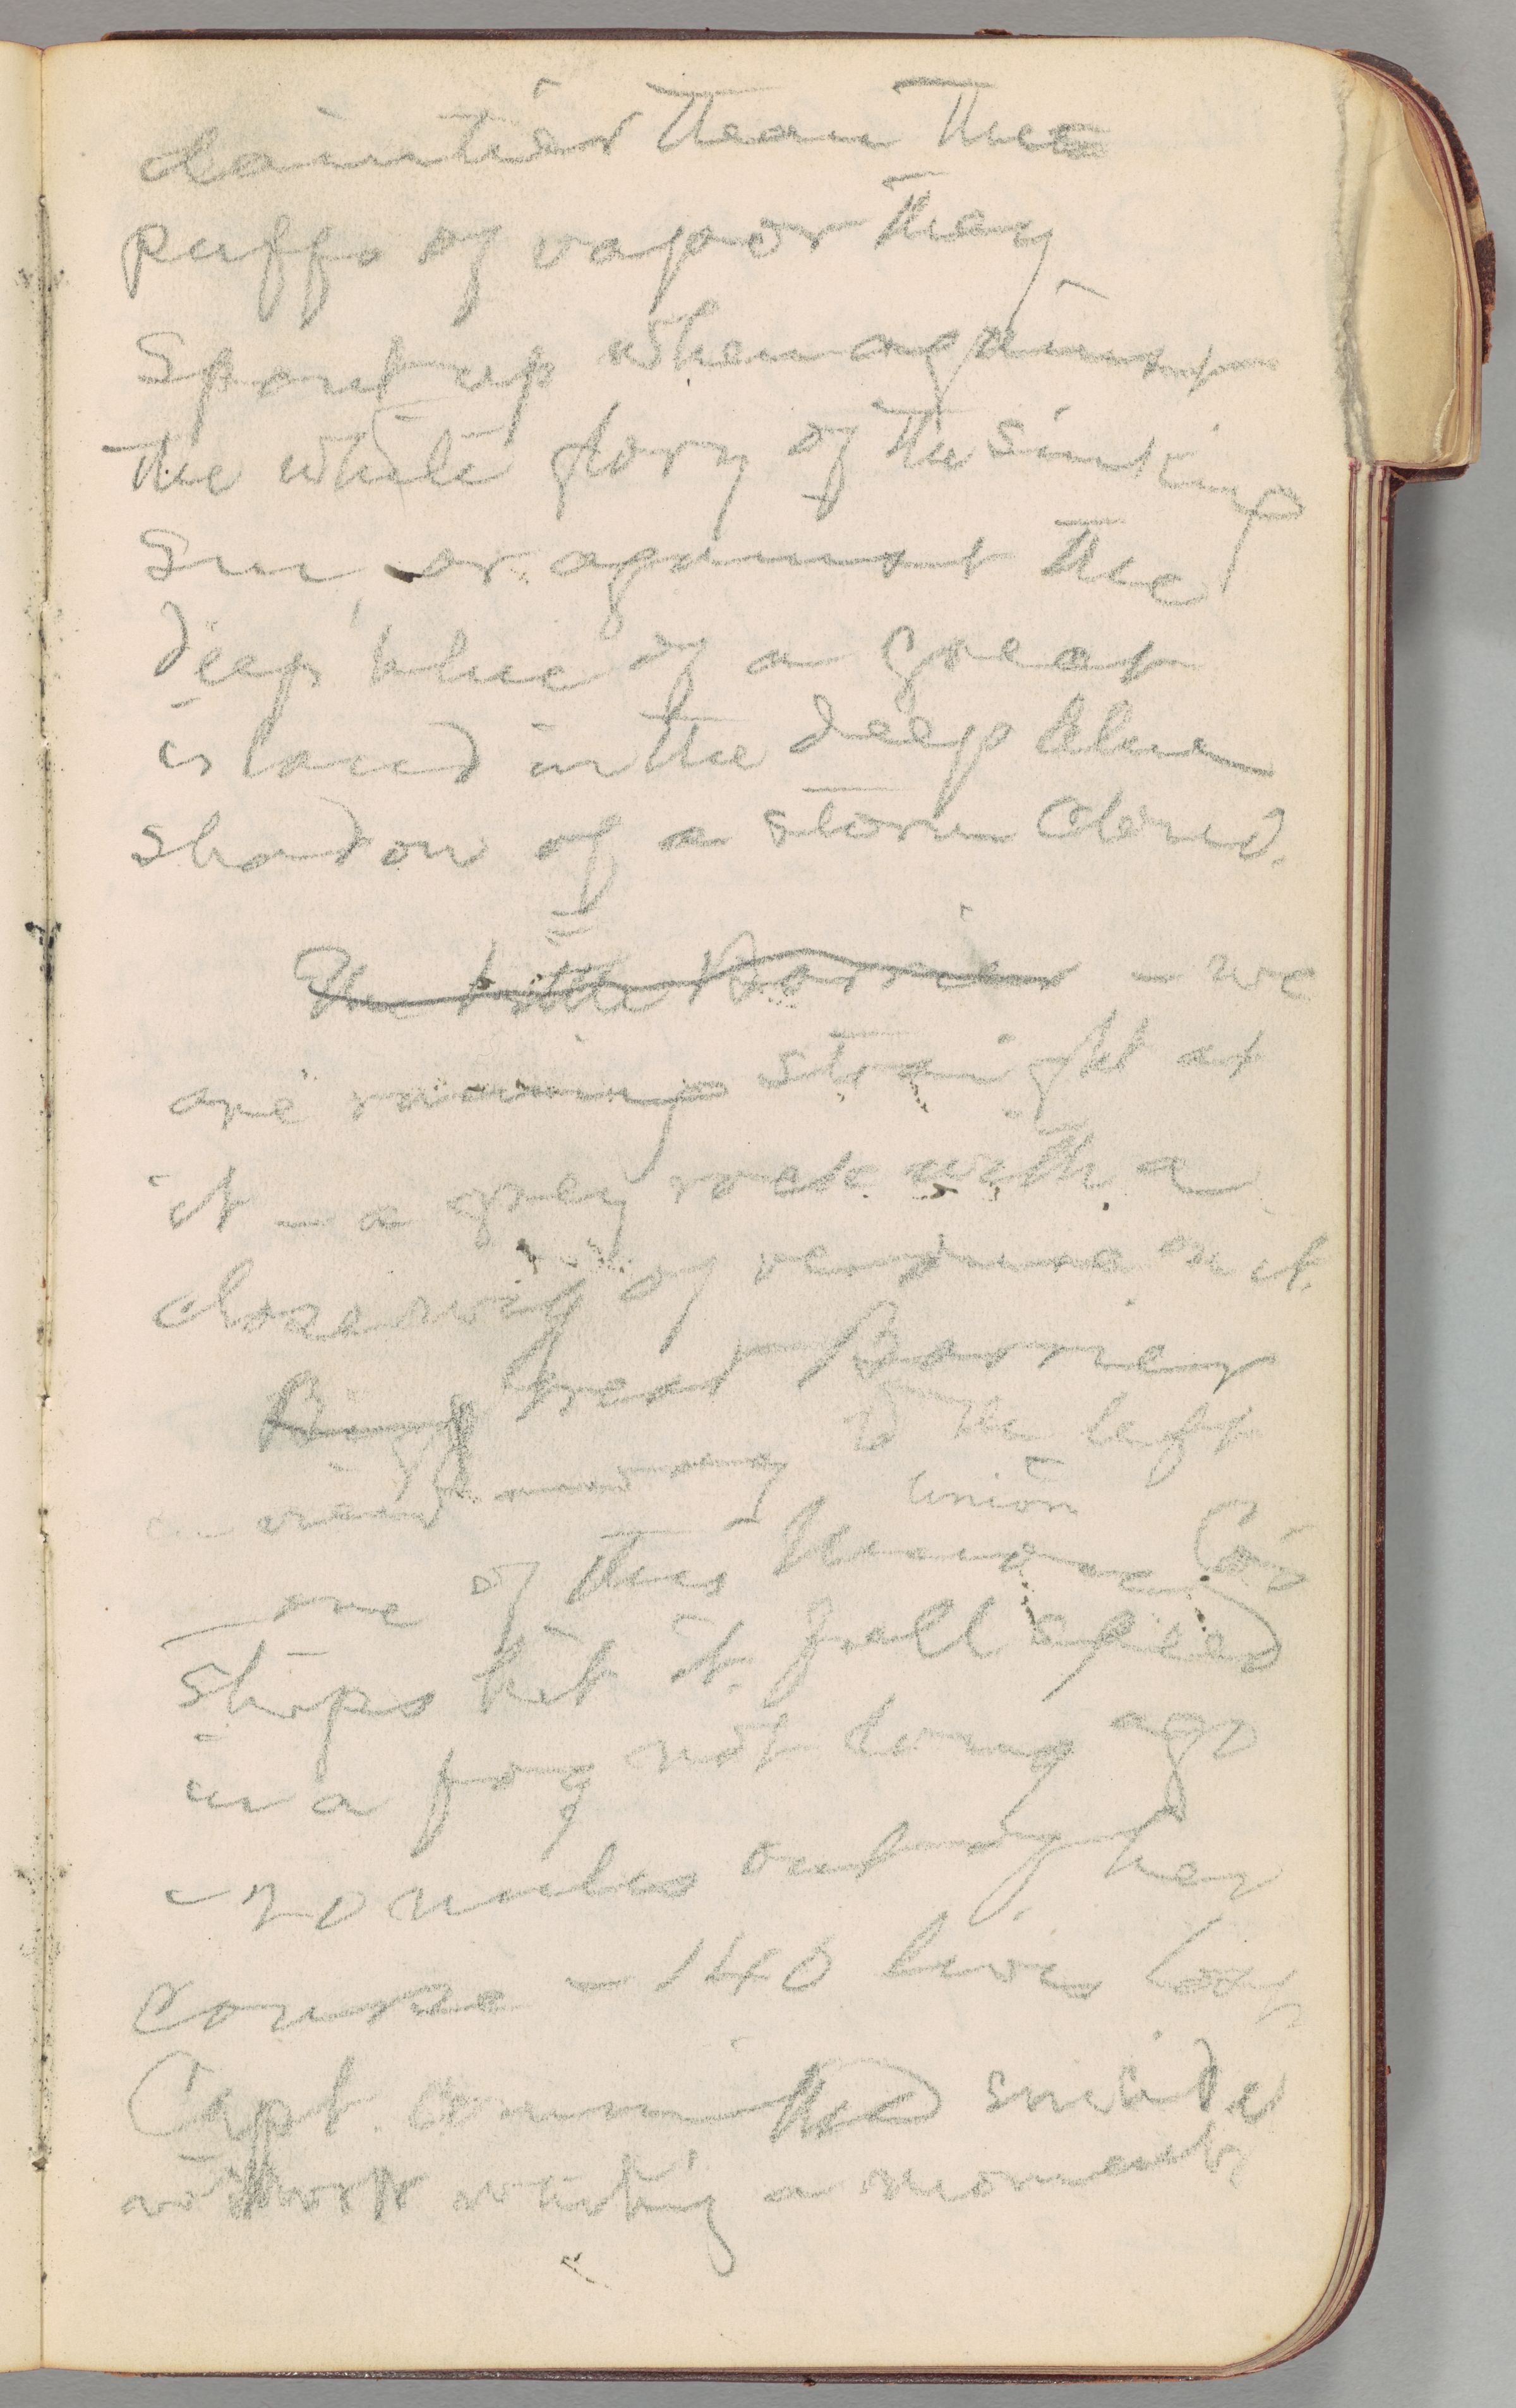 daintier than the
puffs of vapor they
spout up when against
the white glory of the sinking
sun, or against the
deep blue of a great
island in the deep blue
shadow of a storm cloud.
The Little Barrier – we
are running straight at
it – a grey rock with a
close wig of verdure on it.
Big Great Barrier
to the left
Union
– one of this Co's
ships hit it full speed
in a fog not long ago
– 20 miles out of her
course – 140 lives lost
Capt. committed suicide
without waiting a moment.